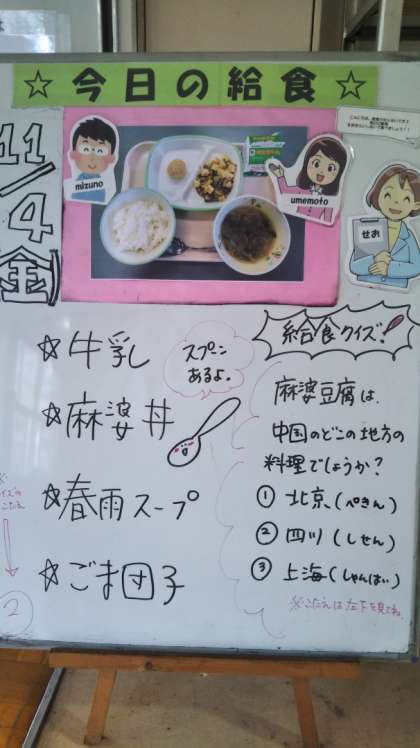 ☆今日の給食☆
11/4
(金)
mizuno
umemoto
せお
☆牛乳
☆麻婆丼
☆春雨スープ
☆ごま団子
スプーン
あるよ。
給食クイズ!
麻婆豆腐は、
中国のどこの地方の
料理でしょうか?
① 北京(ぺきん)
② 四川(しせん)
③ 上海(しゃんはい)
※こたえは左下を見てね。
②